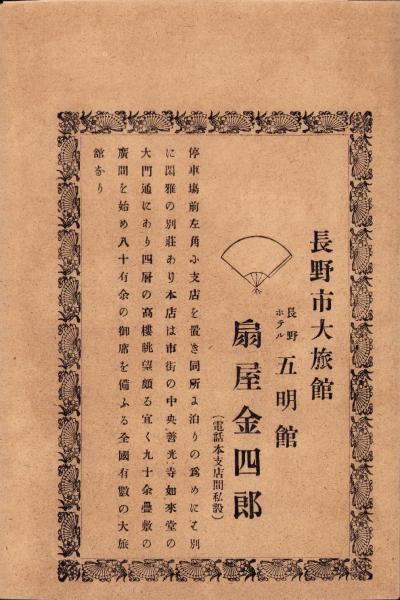 長野市大旅館
長野ホテル 五明館
扇屋金四郎
(電話本支店間私設)
停車場前左角に支店を置き同所よ泊りの爲めにそ別
に閑雅の別莊あり本店は市街の中央善光寺如來堂の
大門通にあり四層の高樓眺望頗る宜く九十余疊敷の
廣間を始め八十有余の御席を備ふる全國有數の大旅
舘なり